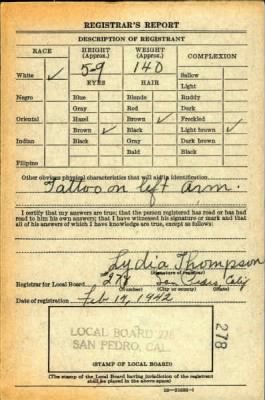 REGISTRAR'S REPORT
DESCRIPTION OF REGISTRANT
RACE HEIGHT (Approx.) WEIGHT (Approx.) COMPLEXION
White ✓ 5-9 140 Sallow
EYES HAIR Light
Negro Blue Blonde Ruddy
Gray Red Dark
Oriental Hazel Brown ✓ Freckled
Brown ✓ Black Light brown ✓
Indian Black Gray Dark brown
Bald Black
Filipino
Other obvious physical characteristics that will aid in identification
Tattoo on left arm.
I certify that my answers are true; that the person registered has read or has had
read to him his own answers; that I have witnessed his signature or mark and that
all of his answers of which I have knowledge are true, except as follows:
Lydia Thompson
(Signature of registrar)
Registrar for Local Board 278 San Pedro, Calif
(Number) (City or county) (State)
Date of registration Feb 17, 1942
LOCAL BOARD 278
SAN PEDRO, CAL.
278
(STAMP OF LOCAL BOARD)
(The stamp of the Local Board having jurisdiction of the registrant
shall be placed in the above space)